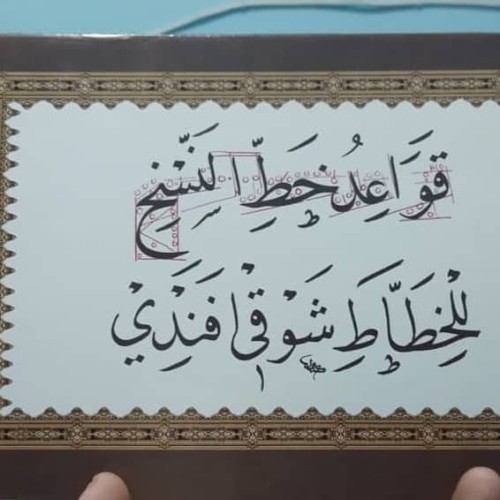 قَوَاعِدُ خَطِّ النَّسْخِ
لِلْخَطَّاطِ شَوْقِي اَفَنْدِيْ